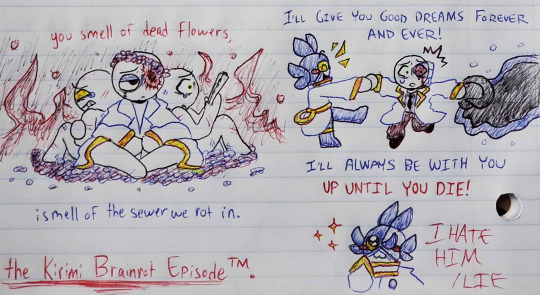 you smell of dead flowers,
ismell of the sewer we rot in.
the Kirimi Brainrot Episode™.
I'LL GIVE YOU GOOD DREAMS FOREVER
AND EVER!
I'LL ALWAYS BE WITH YOU
UP UNTIL YOU DIE!
I HATE
HIM
/LIE